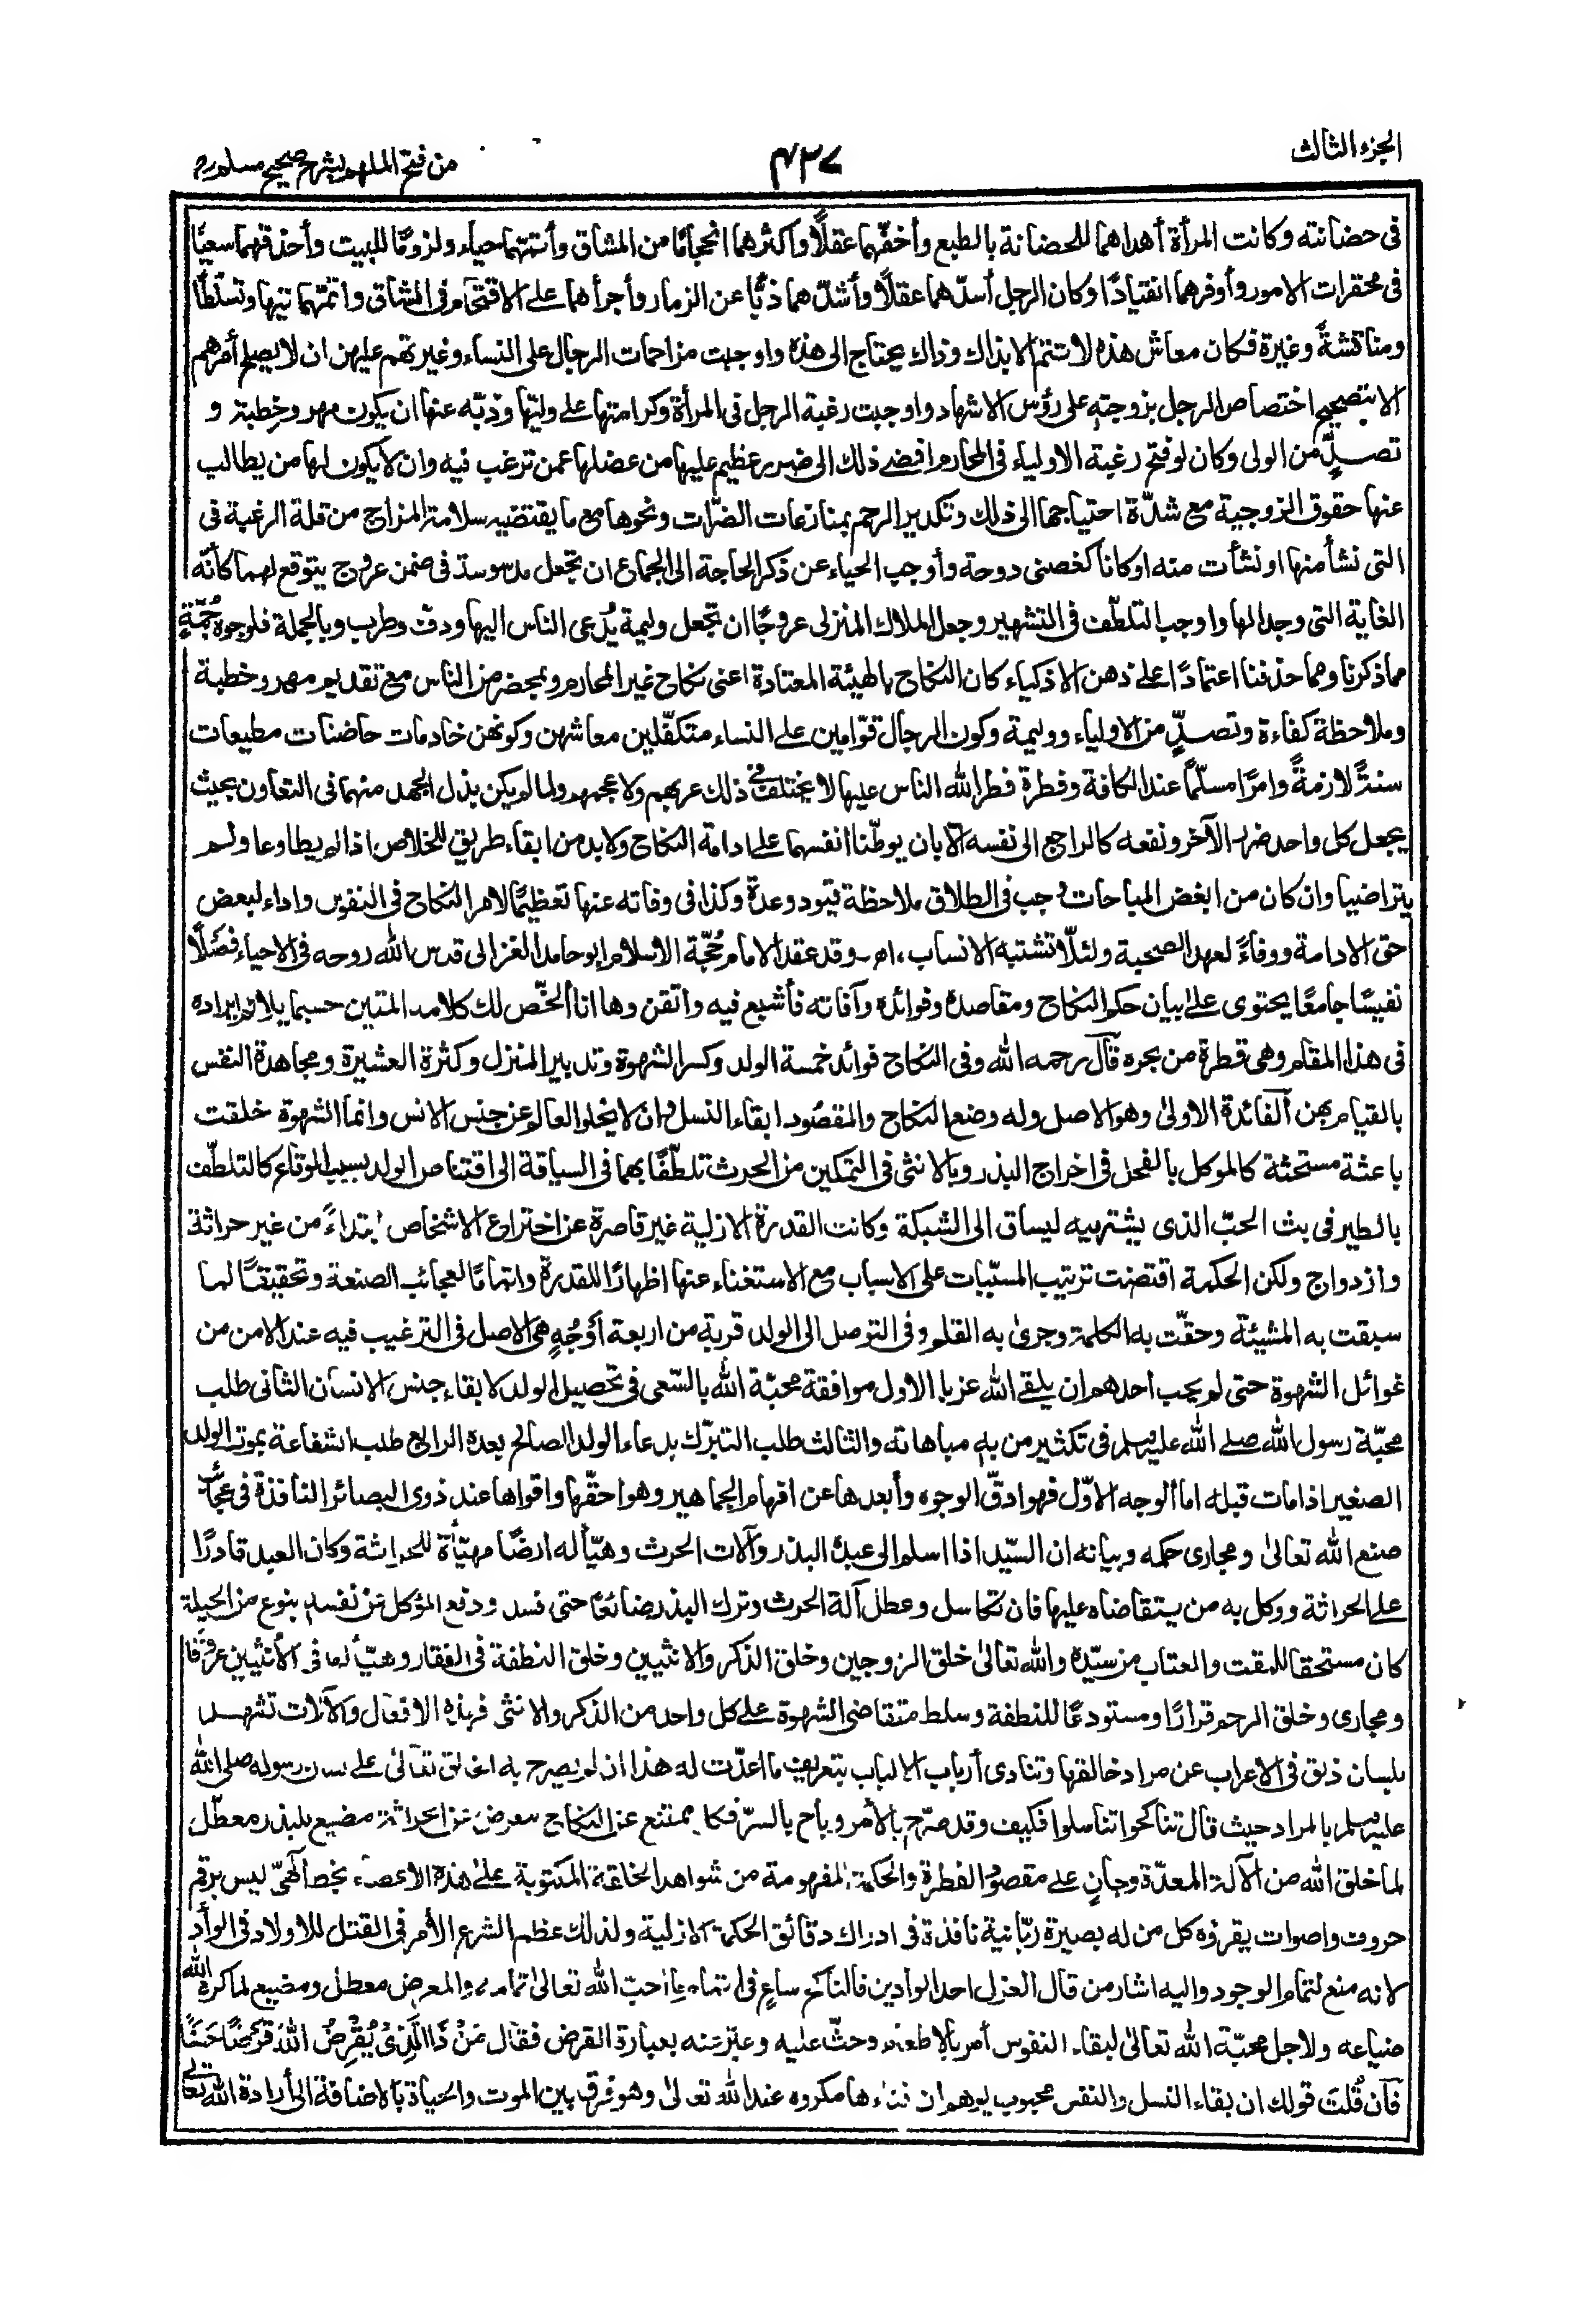 الجزء الثالث
٤٣٧
من فتح الملهم بشرح صحيح مسلم
فى حضانته وكانت المرأة أهداهما للحضانة بالطبع وأخفّهما عقلًا وأكثرهما انحجامًا من المشاق وأتمّهما حياء ولزومًا للبيت وأحذقهما سعيًا
فى محقرات الامور وأوفرهما انقيادًا وكان الرجل أسدّهما عقلًا وأشدّهما ذبًّا عن الزمار وأجرأهما على الاقتحام فى المشاق واتمّهما تيها وتسلّطًا
ومناقشةً وغيرة فكان معاش هذه لا تتم الا بذاك وذاك يحتاج الى هذه واوجبت مزاحمات الرجال على النساء وغيرتهم عليهن ان لا يصلح أمرهم
الا بتصحيح اختصاص الرجل بزوجته على رؤس الاشهاد واوجبت رغبة الرجل فى المرأة وكرامتها على وليّها وذبّه عنها ان يكون مهر وخطبة و
تصدٍّ من الولى وكان لو فتح رغبة الاولياء فى المحارم افضى ذلك الى ضرر عظيم عليها من عضلها عمن ترغب فيه وان لا يكون لها من يطالب
عنها حقوق الزوجية مع شدّة احتياجها الى ذلك وتكدير الرحم بمنازعات الضرّات ونحوها مع ما يقتضيه سلامة المزاج من قلة الرغبة فى
التى نشأ منها او نشأت منه او كانا كغصنى دوحة وأوجب الحياء عن ذكر الحاجة الى الجماع ان تجعل مدسوسة فى ضمن عروج يتوقع لهما كأنّه
الغاية التى وجدا لها واوجب التلطّف فى التشهير وجعل الملاك المنزلى عروجًا ان تجعل وليمة يُدعى الناس اليها ودف وطرب وبالجملة فلوجوه جُمّةٍ
مما ذكرنا ومما حذفنا اعتمادًا على ذهن الاذكياء كان النكاح بالهيئة المعتادة اعنى نكاح غير المحارم وبمحضر من الناس مع تقديم مهر وخطبة
وملاحظة كفاءة وتصدٍّ من الاولياء ووليمة وكون الرجال قوّامين على النساء متكفّلين معاشهن وكونهن خادمات حاضنات مطيعات
سنةً لازمةً وامرًا مسلّمًا عند الكافة وفطرة فطر الله الناس عليها لا يختلف فى ذلك عربهم ولا عجمهم ولما لم يكن بذل الجهد منهما فى التعاون بحيث
يجعل كل واحد ضرر الآخر ونفعه كالراجع الى نفسه الّا بان يوطّنا انفسهما على ادامة النكاح ولا بد من ابقاء طريق للخلاص اذا لم يطاوعا ولم
يتراضيا وان كان من ابغض المباحات وجب فى الطلاق ملاحظة قيود وعدة وكذا فى وفاته عنها تعظيمًا لامر النكاح فى النفوس واداء لبعض
حق الادامة ووفاءً لعهد الصحبة ولئلّا تشتبه الانساب، اهـ. وقد عقد الامام حُجّة الاسلام ابو حامد الغزالى قدس الله روحه فى الاحياء فصلًا
نفيسًا جامعًا يحتوى على بيان حكم النكاح ومقاصده وفوائده وآفاته فأشبع فيه وأتقن وها انا ألخّص لك كلامه المتين حسبما يلائم ايراده
فى هذا المقام وهى قطرة من بحره قال رحمه الله وفى النكاح فوائد خمسة الولد وكسر الشهوة وتدبير المنزل وكثرة العشيرة ومجاهدة النفس
بالقيام بهن الفائدة الاولى وهو الاصل وله وضع النكاح والمقصود ابقاء النسل وان لا يخلو العالم عن جنس الانس وانما الشهوة خلقت
باعثة مستحثة كالموكل بالفحل فى اخراج البذر وبالانثى فى التمكين من الحرث تلطّفًا بهما فى السياقة الى اقتناص الولد بسبب الوقاع كالتلطّف
بالطير فى بث الحبّ الذى يشتهيه ليساق الى الشبكة وكانت القدرة الازلية غير قاصرة عن اختراع الاشخاص ابتداءً من غير حراثة
وازدواج ولكن الحكمة اقتضت ترتيب المسبّبات على الاسباب مع الاستغناء عنها اظهارًا للقدرة واتمامًا لعجائب الصنعة وتحقيقًا لما
سبقت به المشيئة وحقّت به الكلمة وجرى به القلم وفى التوصل الى الولد قربة من اربعة أوجُهٍ هى الاصل فى الترغيب فيه عند الامن من
غوائل الشهوة حتى لم يحب احدهم ان يلقى الله عزبا الاول موافقة محبّة الله بالسّعى فى تحصيل الولد لابقاء جنس الانسان الثانى طلب
محبّة رسول الله صلى الله عليه وسلم فى تكثير من به مباهاته والثالث طلب التبرّك بدعاء الولد الصالح بعده الرابع طلب الشفاعة بموت الولد
الصغير اذا مات قبله اما الوجه الاوّل فهو ادقّ الوجوه وأبعدها عن افهام الجماهير وهو احقّها واقواها عند ذوى البصائر النافذة فى عجائب
صنع الله تعالى ومجارى حكمه وبيانه ان السيّد اذا اسلم الى عبده البذر وآلات الحرث وهيّأ له ارضًا مهيّأة للحراثة وكان العبد قادرًا
على الحراثة ووكل به من يتقاضاه عليها فان تكاسل وعطل آلة الحرث وترك البذر ضائعًا حتى فسد ودفع المؤكل عن نفسه بنوع من الحيلة
كان مستحقا للمقت والعتاب من سيّده والله تعالى خلق الزوجين وخلق الذكر والانثيين وخلق النطفة فى الفقار وهيّأ لها فى الأنثيين عروقا
ومجارى وخلق الرحم قرارًا ومستودعًا للنطفة وسلط متقاضى الشهوة على كل واحد من الذكر والانثى فهذه الافعال والآلات تشهد
بلسان ذلق فى الاعراب عن مراد خالقها وتنادى أرباب الالباب بتعريف ما اعدّت له هذا ان لم يصرح به الخالق تعالى على لسان رسوله صلى الله
عليه وسلم بالمراد حيث قال تناكحوا تناسلوا فكيف وقد صرّح بالأمر وباح بالسرّ فكل ممتنع عن النكاح معرض عن الحراثة مضيع للبذر معطّل
لما خلق الله من الآلة المعدّة وجانٍ على مقصود الفطرة والحكمة المفهومة من شواهد الخلقة المكتوبة على هذه الاعضاء بخط الٰهىّ ليس برقم
حروف واصوات يقرؤه كل من له بصيرة ربّانية نافذة فى ادراك دقائق الحكمة الازلية ولذلك عظم الشرع الأمر فى القتل للاولاد فى الوأد
لانه منع لتمام الوجود واليه اشار من قال العزل احد الوأدين فالناكح ساعٍ فى اتمام ما احبّ الله تعالى تمامه والمعرض معطل ومضيع لما كره الله
ضياعه ولاجل محبّة الله تعالى لبقاء النفوس أمر بالاطعام وحثّ عليه وعبّر عنه بعبارة القرض فقال مَنْ ذَا الَّذِىْ يُقْرِضُ اللهَ قَرْضًا حَسَنًا
فان قُلتَ قولك ان بقاء النسل والنفس محبوب يوهم ان فناءها مكروه عند الله تعالى وهو فرق بين الموت والحياة بالاضافة الى أرادة الله تعالى